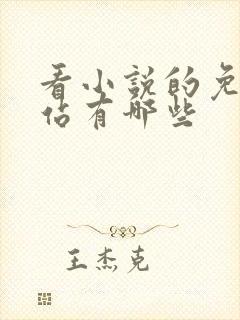 看小说的免
站有哪些
王杰克